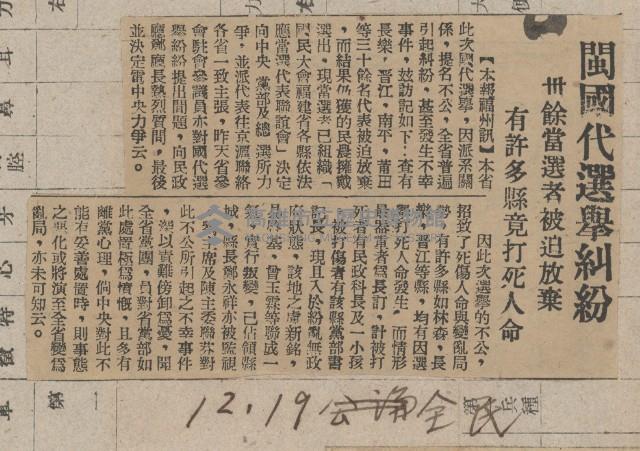 閩國代選舉糾紛
卅餘當選者被迫放棄
有許多縣竟打死人命
【本報福州訊】本省
此次國代選舉，因派系關
係，提名不公，全省普遍
引起糾紛，甚至發生不幸
事件，玆訪記如下：查有
長樂，晉江，南平，莆田
等三十餘名代表被迫放棄
，而結果仍獲的民農擁戴
選出，現當選者已組織「
國民大會福建省各縣依法
應當選代表聯誼會」決定
向中央　黨部及總　選所力
爭，並派代表往京滬聯絡
各省一致主張，昨天省參
會駐會參議員亦對國代選
舉紛紛提出問題，向民政
廳鄭廳長熱烈質問，最後
並決定電中央力爭云。
因此次選舉的不公，
招致了死傷人命與變亂局
勢，有許多縣如林森，長
樂，晉江等縣，均有因選
舉打死人命發生，而情形
最嚴重者爲長訂，計被打
死者有民政科長及一小孩
，被打傷者有該縣黨部書
記長，現且入於紛亂無政
府狀態，該地之盧新銘，
曾玉霖等聯成一
氣，實行叛變，已佔領縣
城，縣長鄭永祥亦被監視
席及陳主委聯芬對
此不公所引起之不幸事件
，深以責難傍卸爲憂，聞
全省黨團，員對省黨部如
此處置極爲憤慨，且多有
離黨心理，倘中央對此不
能有妥善處置時，則事態
之惡化或將演至全省變爲
亂局，亦未可知云。
12.19 全民